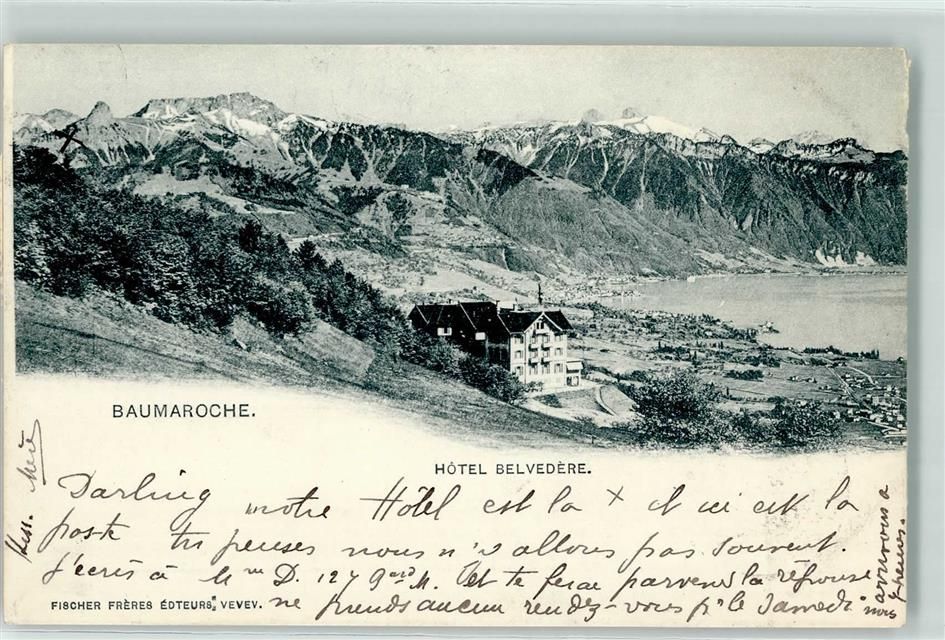 BAUMAROCHE.
HÔTEL BELVEDÈRE.
Darling notre Hôtel est la x et ici est la
poste tu penses nous n'y allons pas souvent.
J'écris à Mme D. 127 Gard M. et te ferai parvenir la réponse
FISCHER FRÈRES ÉDTEURS, VEVEY.
ne prends aucun rendez-vous pr le Samedi nous
avons à
Kiss.